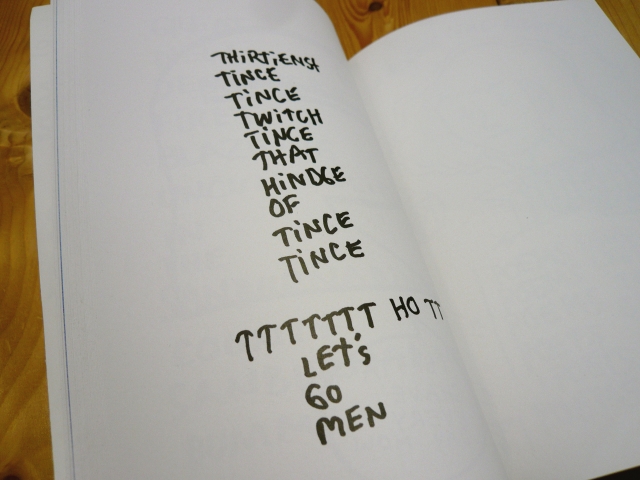 THIRTIENST
TINCE
TINCE
TWITCH
TINCE
THAT
HINDGE
OF
TINCE
TINCE
TTTTTTT HO TT
LET'S
GO
MEN